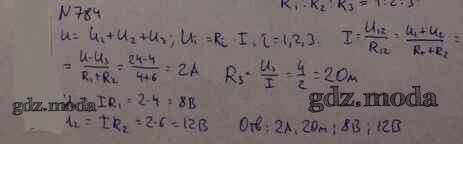 R₁ : R₂ : R₃ = 4 : 2 : 3
N 784
U = U₁ + U₂ + U₃ ; Uᵢ = Rᵢ · I , i = 1, 2, 3. I = U₁₂/R₁₂ = (U₁+U₂)/(R₁+R₂) =
= (U-U₃)/(R₁+R₂) = (24-4)/(4+6) = 2А R₃ = U₃/I = 4/2 = 2Ом
IR₁ = 2·4 = 8В
gdz.moda
gdz.moda
U₂ = IR₂ = 2·6 = 12В Отв: 2А, 2Ом ; 8В ; 12В